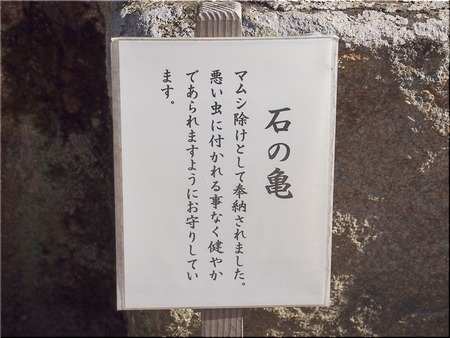 石の亀
マムシ除けとして奉納されました。
悪い虫に付かれる事なく健やか
であられますようにお守りしてい
ます。